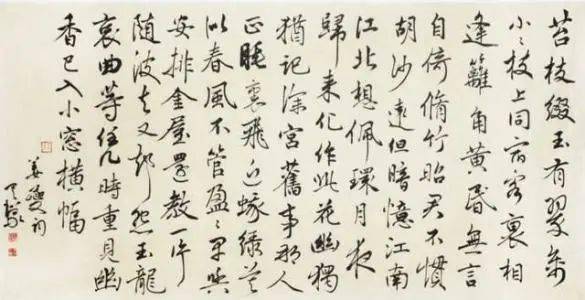 苔枝綴玉有翠禽
小〻枝上同宿客裏相
逢籬角黃昏無言
自倚脩竹昭君不慣
胡沙遠但暗憶江南
江北想佩環月夜
歸來化作此花幽獨
猶記深宮舊事那人
正睡裏飛近蛾綠莫
似春風不管盈〻早與
安排金屋還教一片
隨波去又却怨玉龍
哀曲等恁時重見幽
香已入小窓橫幅
姜夔詞